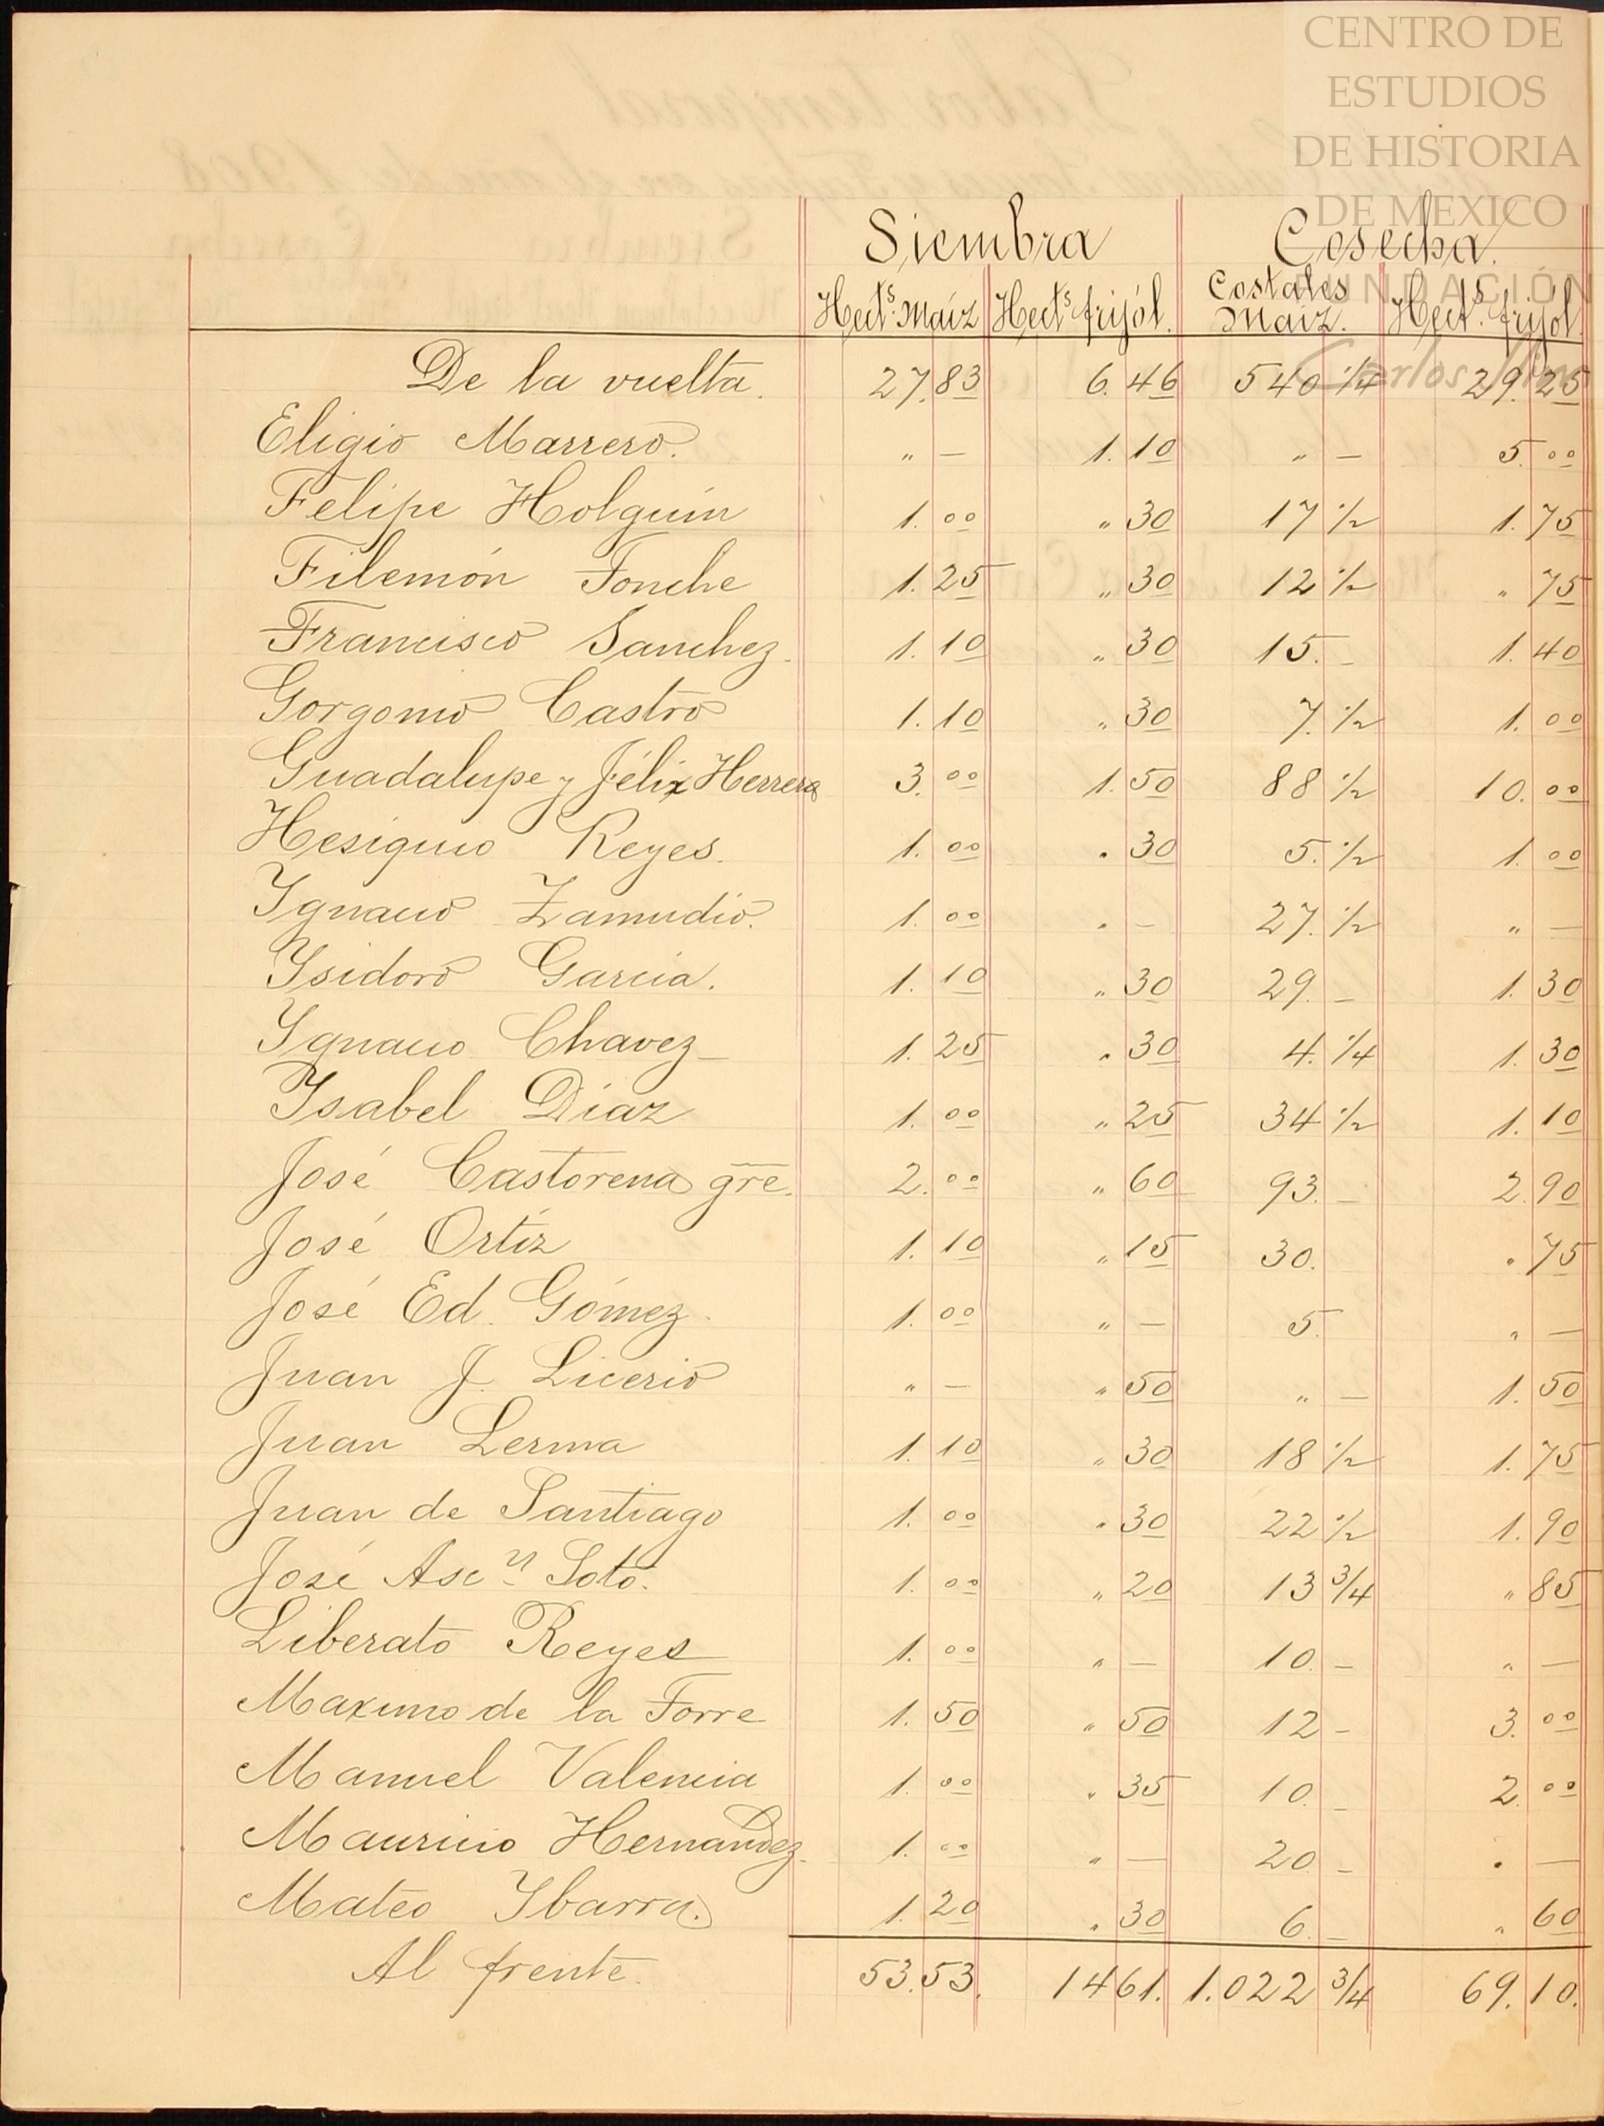 CENTRO DE
ESTUDIOS
DE HISTORIA
DE MEXICO
FUNDACIÓN
Carlos Slim
Siembra Cosecha.
Hects. Maíz Hects frijól. Costales Maiz. Hects. frijol.
De la vuelta. 27.83 6.46 540 1/4 29.25
Eligio Marrero. " — 1.10 " — 5.00
Felipe Holguin 1.00 " 30 17 1/2 1.75
Filemón Tonche 1.25 " 30 12 1/2 " 75
Francisco Sanchez. 1.10 " 30 15. - 1.40
Gorgonio Castro 1.10 " 30 7. 1/2 1.00
Guadalupe y Félix Herrera 3.00 1.50 88 1/2 10.00
Hesiquio Reyes. 1.00 . 30 5. 1/2 1.00
Ygnacio Zamudio. 1.00 . - 27. 1/2 " —
Ysidoro Garcia. 1.10 " 30 29. - 1.30
Ygnacio Chavez 1.25 . 30 4. 1/4 1.30
Ysabel Díaz 1.00 " 25 34 1/2 1.10
José Castorena gre. 2.00 " 60 93. - 2.90
José Ortíz 1.10 " 15 30. . 75
José Ed. Gómez. 1.00 " — 5. " —
Juan J. Licerio " — " 50 " — 1.50
Juan Lerma 1.10 " 30 18 1/2 1.75
Juan de Santiago 1.00 . 30 22 1/2 1.90
José Ascn Soto. 1.00 " 20 13 3/4 " 85
Liberato Reyes 1.00 " — 10. - " —
Maximo de la Torre 1.50 " 50 12 - 3.00
Manuel Valencia 1.00 . 35 10. - 2.00
Mauricio Hernandez. 1.00 " — 20. - . —
Mateo Ybarra. 1.20 . 30 6. - " 60
Al frente. 53.53. 1461. 1.022 3/4 69.10.